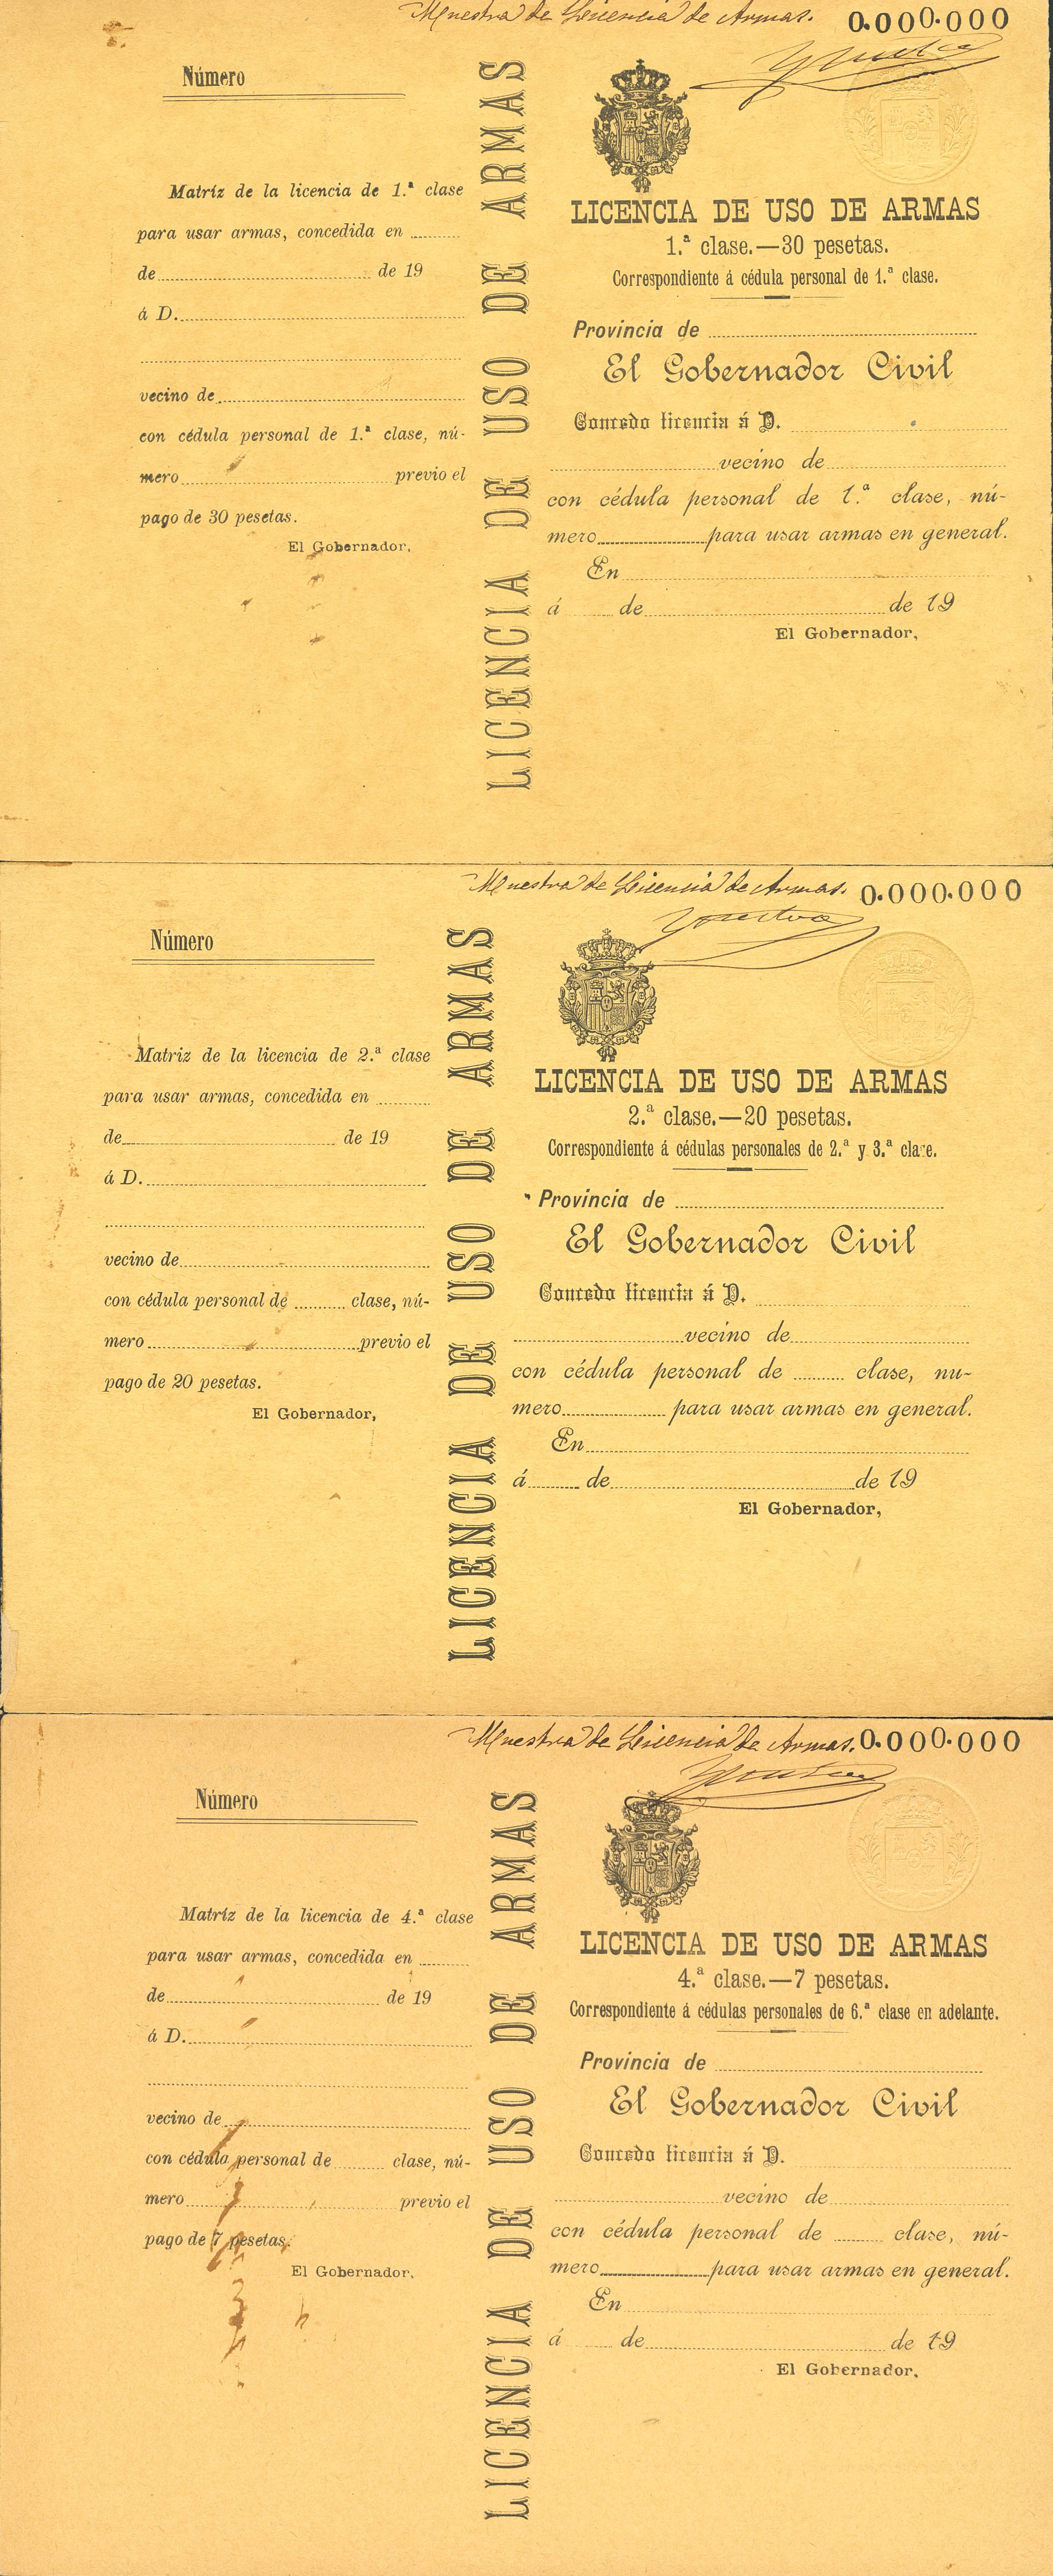 Muestra de Licencia de Armas.
0.000.000
Número
Matríz de la licencia de 1.ª clase
para usar armas, concedida en
de de 19
á D.
vecino de
con cédula personal de 1.ª clase, nú-
mero previo el
pago de 30 pesetas.
El Gobernador,
LICENCIA DE USO DE ARMAS
LICENCIA DE USO DE ARMAS
1.ª clase.—30 pesetas.
Correspondiente á cédula personal de 1.ª clase.
Provincia de
El Gobernador Civil
Concedo licencia á D.
vecino de
con cédula personal de 1.ª clase, nú-
mero para usar armas en general.
En
á de de 19
El Gobernador,
Muestra de Licencia de Armas.
0.000.000
Número
Matriz de la licencia de 2.ª clase
para usar armas, concedida en
de de 19
á D.
vecino de
con cédula personal de clase, nú-
mero previo el
pago de 20 pesetas.
El Gobernador,
LICENCIA DE USO DE ARMAS
LICENCIA DE USO DE ARMAS
2.ª clase.—20 pesetas.
Correspondiente á cédulas personales de 2.ª y 3.ª clase.
Provincia de
El Gobernador Civil
Concedo licencia á D.
vecino de
con cédula personal de clase, nu-
mero para usar armas en general.
En
á de de 19
El Gobernador,
Muestra de Licencia de Armas.
0.000.000
Número
Matríz de la licencia de 4.ª clase
para usar armas, concedida en
de de 19
á D.
vecino de
con cédula personal de clase, nú-
mero previo el
pago de 7 pesetas.
El Gobernador,
LICENCIA DE USO DE ARMAS
LICENCIA DE USO DE ARMAS
4.ª clase.—7 pesetas.
Correspondiente á cédulas personales de 6.ª clase en adelante.
Provincia de
El Gobernador Civil
Concedo licencia á D.
vecino de
con cédula personal de clase, nú-
mero para usar armas en general.
En
á de de 19
El Gobernador,